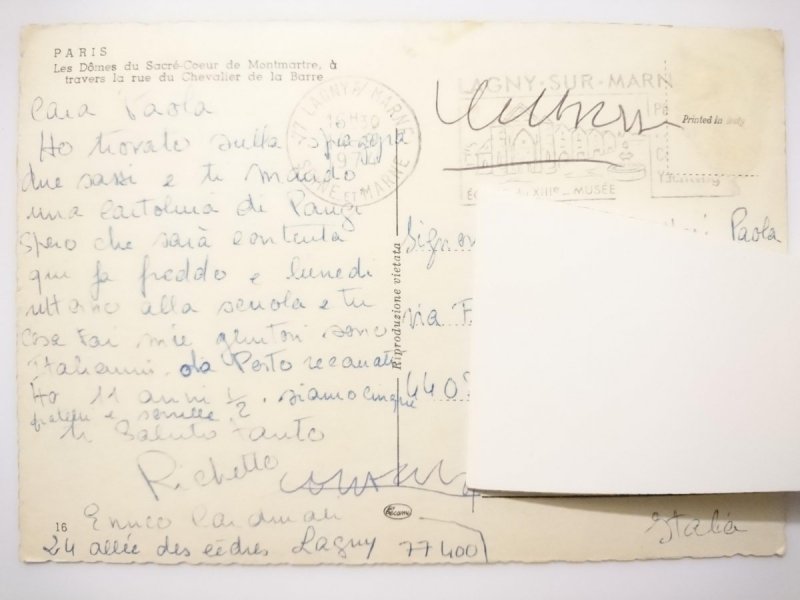 PARIS
Les Dômes du Sacré-Coeur de Montmartre, à
travers la rue du Chevalier de la Barre
Cara Paola
Ho trovato sulla spiaggia
due sassi e ti mando
una cartolina di Parigi
spero che sarà contenta
qui fa freddo e lunedi
alla scuola e tu
cosa fai miei genitori sono
Italiani da Porto recanati
Ho 11 anni 1/2. siamo cinque
fratelli e sorelle 2
ti Saluto tanto
Richetto
16
Enrico
24 allée des cèdres Lagny 77400
Riproduzione vietata
Fécamé
77 LAGNY S/ MARNE
16H30
197
SEINE ET MARNE
LAGNY-SUR-MARN
XIIIe - MUSÉE
Printed in Italy
Signor
Paola
via F
440
Italia